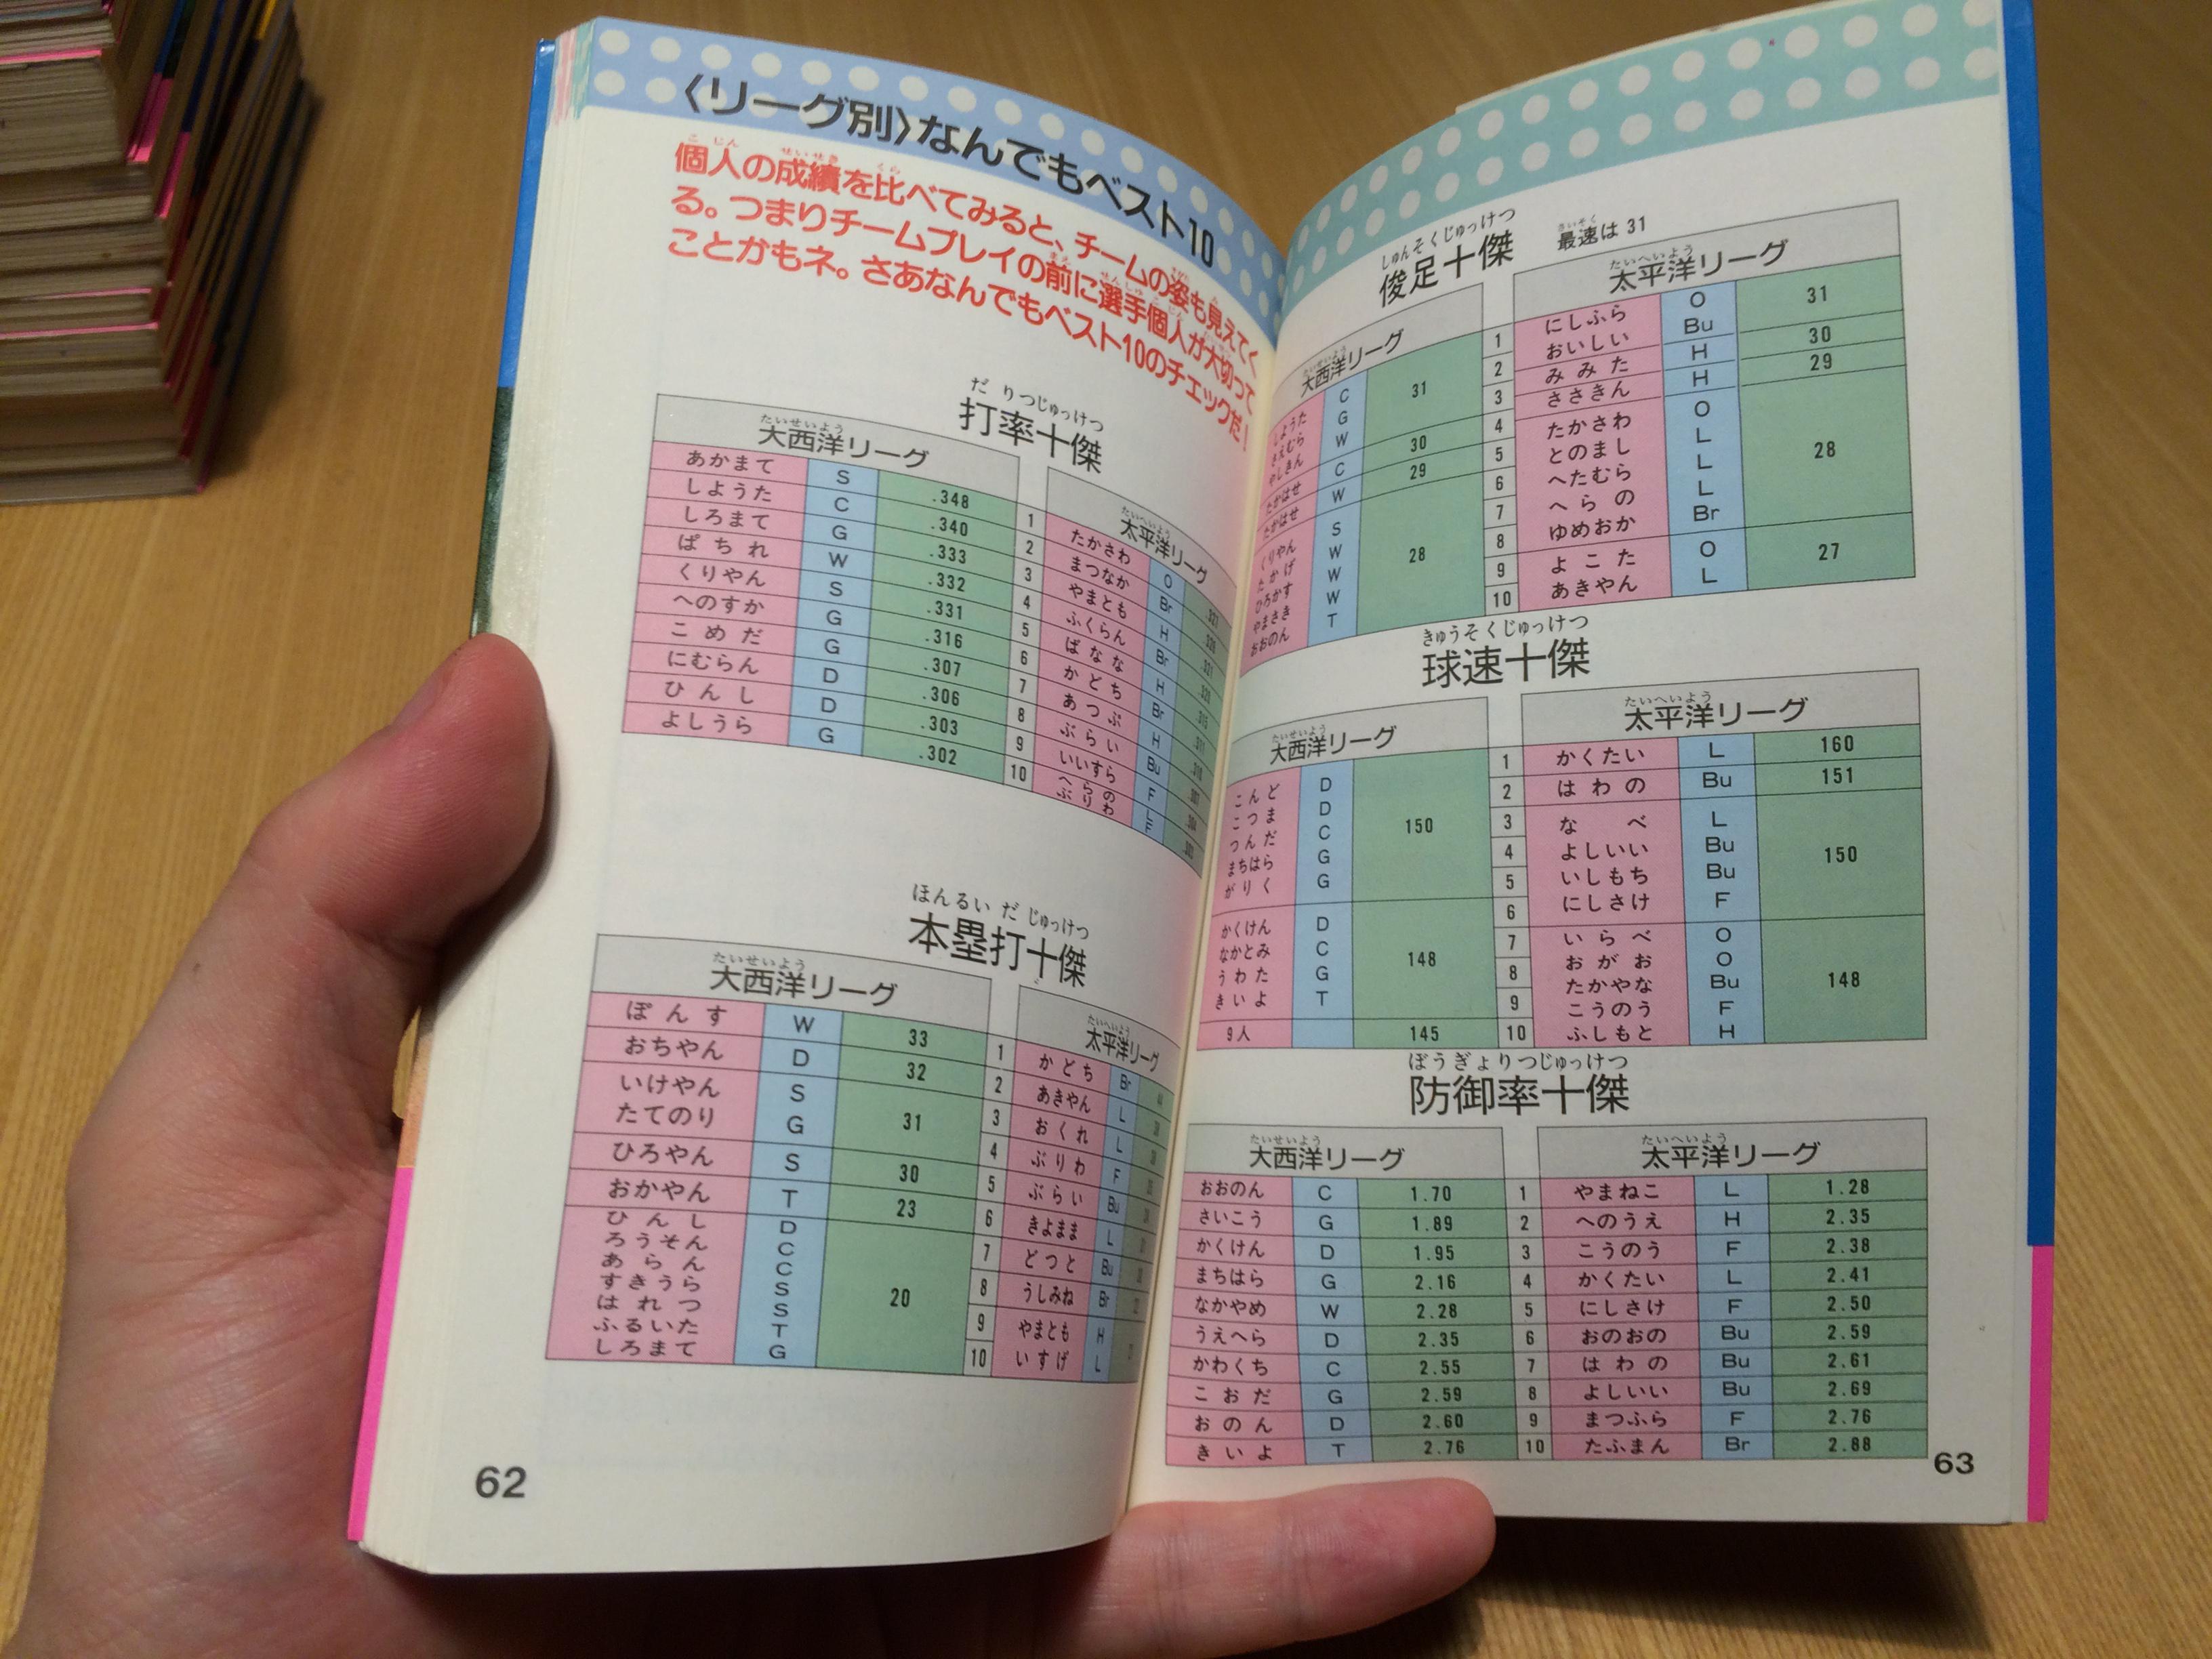 〈リーグ別〉なんでもベスト10
個人の成績を比べてみると、チームの姿も見えてく
る。つまりチームプレイの前に選手個人が大切って
ことかもネ。さあなんでもベスト10のチェックだ!
だりつじゅっけつ
打率十傑
たいせいよう
大西洋リーグ
あかまて S .348
しようた C .340
しろまて G .333
ぱちれ W .332
くりやん S .331
へのすか G .316
こめだ G .307
にむらん D .306
ひんし D .303
よしうら G .302
たいへいよう
太平洋リーグ
1 たかさわ O
2 まつなか Br
3 やまとも H
4 ふくらん Br
5 ばなな H
6 かどち Br
7 あつぷ H
8 ぶらい Bu
9 いいすら F
10 へらの L
ぶりわ F
ほんるいだじゅっけつ
本塁打十傑
たいせいよう
大西洋リーグ
ぽんす W 33
おちやん D 32
いけやん S 31
たてのり G
ひろやん S 30
おかやん T 23
ひんし D 20
ろうそん C
あらん C
すきうら S
はれつ S
ふるいた T
しろまて G
たいへいよう
太平洋リーグ
1 かどち Br
2 あきやん L
3 おくれ L
4 ぶりわ F
5 ぶらい Bu
6 きよまま L
7 どつと Bu
8 うしみね Br
9 やまとも H
10 いすげ L
62
しゅんそくじゅっけつ
俊足十傑
さいそく
最速は 31
たいせいよう
大西洋リーグ
しようた C 31
さえむら G
やしきん W 30
たかはせ C 29
たかはせ W 28
くりやん S
たかげ W
ひろかす W
やまさき W
おおのん T
たいへいよう
太平洋リーグ
1 にしふら O 31
2 おいしい Bu
3 みみた H 30
4 ささきん H 29
5 たかさわ O 28
6 とのまし L
7 へたむら L
8 へらの L
ゆめおか Br
9 よこた O 27
10 あきやん L
きゅうそくじゅっけつ
球速十傑
たいせいよう
大西洋リーグ
こんど D 150
こつま D
つんだ C
まちはら G
がりく G
かくけん D 148
なかとみ C
うわた G
きいよ T
9人 145
たいへいよう
太平洋リーグ
1 かくたい L 160
2 はわの Bu 151
3 なべ L 150
4 よしいい Bu
5 いしもち Bu
6 にしさけ F
7 いらべ O 148
8 おがお O
9 たかやな Bu
こうのう F
10 ふしもと H
ぼうぎょりつじゅっけつ
防御率十傑
たいせいよう
大西洋リーグ
おおのん C 1.70
さいこう G 1.89
かくけん D 1.95
まちはら G 2.16
なかやめ W 2.28
うえへら D 2.35
かわくち C 2.55
こおだ G 2.59
おのん D 2.60
きいよ T 2.76
たいへいよう
太平洋リーグ
1 やまねこ L 1.28
2 へのうえ H 2.35
3 こうのう F 2.38
4 かくたい L 2.41
5 にしさけ F 2.50
6 おのおの Bu 2.59
7 はわの Bu 2.61
8 よしいい Bu 2.69
9 まつふら F 2.76
10 たふまん Br 2.88
63